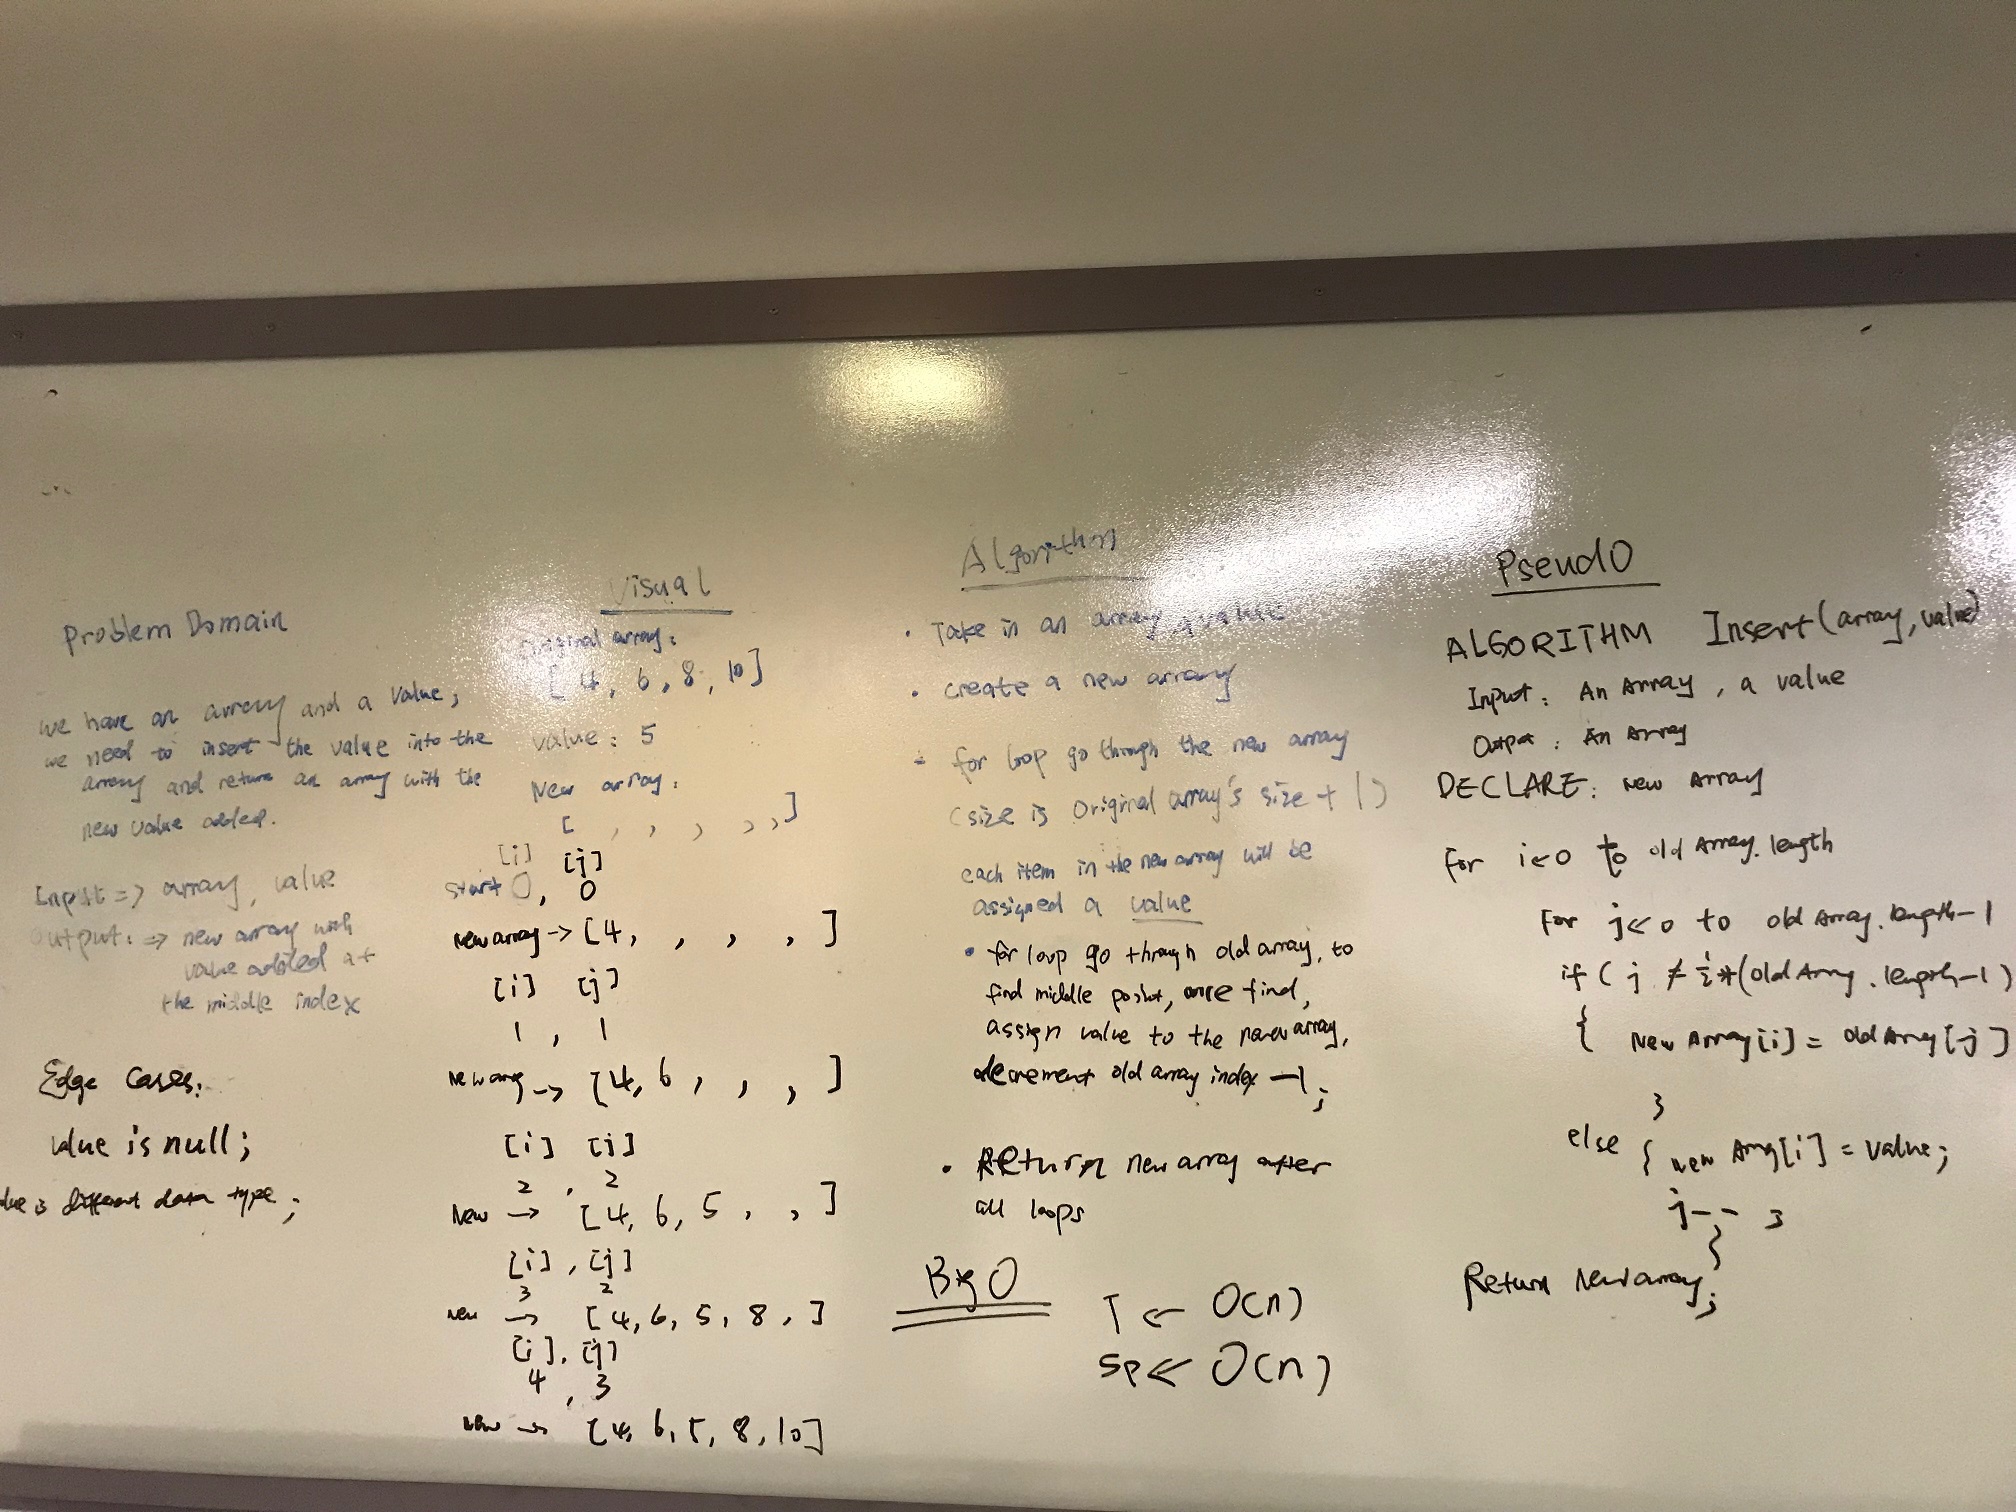 Problem Domain
we have an array and a value,
we need to insert the value into the
array and return an array with the
new value added.
Input => array, value
Output: => new array with
value added at
the middle index
Edge Cases:
value is null;
value is different data type;
Visual
Original array:
[4, 6, 8, 10]
value: 5
New array:
[ , , , , , ]
[i] [j]
start 0, 0
new array -> [4, , , , ]
[i] [j]
1, 1
new array -> [4, 6, , , ]
[i] [j]
2, 2
New -> [4, 6, 5, , ]
[i], [j]
3 2
new -> [4, 6, 5, 8, ]
[i], [j]
4, 3
new -> [4, 6, 5, 8, 10]
Algorithm
• Take in an array, value
• create a new array
• for loop go through the new array
(size is original array's size + 1)
each item in the new array will be
assigned a value
• for loop go through old array, to
find middle point, once find,
assign value to the new array,
decrement old array index -1;
• Return new array after
all loops
Big O
T <- O(n)
Sp <- O(n)
Pseudo
ALGORITHM Insert(array, value)
Input: An Array, a value
Output: An Array
DECLARE: new Array
for i<-0 to old Array.length
for j<-0 to old Array.length-1
if ( j ≠ ½*(old Array.length-1)
{ New Array[i] = old Array[j]
}
else { new Array[i] = value;
j-- }
}
Return New array;